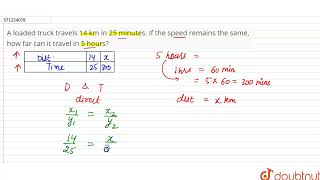 571224078
A loaded truck travels 14 km in 25 minutes. If the speed remains the same,
how far can it travel in 5 hours?
↑ Dist. 14 x
↑ Time 25 300
5 hours =
1 hrs = 60 min
= 5 x 60 = 300 mins
D & T
direct
dist = x km
x₁/y₁ = x₂/y₂
14/25 = x/3
doubtnut